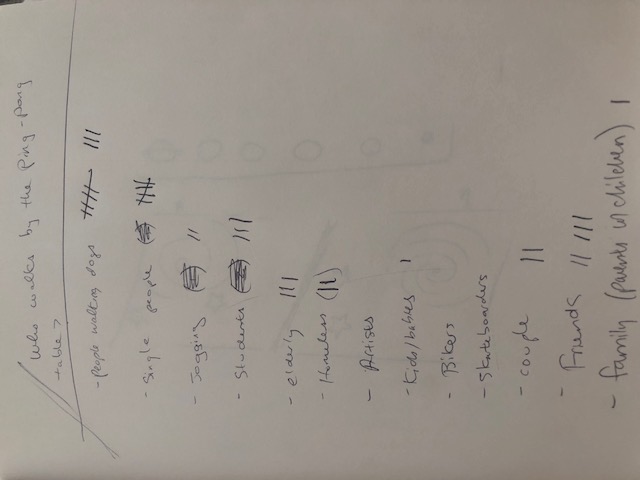 who walks by the Ping-Pong
table?
- People walking dogs 卌 |||
- Single people 卌
- Jogging ||
- Students |||
- elderly |||
- Homeless (||)
- Artists
- Kids/babies |
- Bikers
- Skateboarders
- couple ||
- Friends || |||
- family (parents w children) |